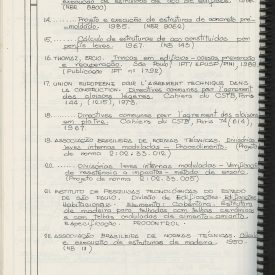 execução de estruturas de aço de edifícios. 1986.
(NBR 8800)
14. ______. Projeto e execução de estruturas de concreto pré-
moldado. 1985. (NBR 9062)
15. ______. Cálculo de estruturas de aço constituídas por
perfis leves. 1967. (NB 143)
16. THOMAZ, ERCIO. Trincas em edifícios - causas, prevenção
e recuperação. São Paulo, IPT/EPUSP/PINI, 1989.
(Publicação IPT nº 1792)
17. UNION EUROPÉENNE POUR L'AGRÉMENT TECHNIQUE DANS
LA CONSTRUCTION. Directives communes pour l'agrément
des cloisons légères. Cahiers du CSTB, Paris
144, (1215), 1973.
18. ______. Directives communes pour l'agrément des cloisons
en plâtre. Cahiers du CSTB, Paris
1967.
19. ASSOCIAÇÃO BRASILEIRA DE NORMAS TÉCNICAS. Divisórias
leves internas moduladas - Procedimento. (Projeto
de norma 2:02.
20. ______. Divisórias leves internas moduladas - Verificação
da resistência a impactos - método de ensaio.
(Projeto de norma 2:
21. INSTITUTO DE PESQUISAS TECNOLÓGICAS DO ESTADO
DE SÃO PAULO. Divisão de Edificações. Edificações
Habitacionais - Elemento Cobertura - Estrutura
de madeira para telhados com telhas cerâmicas
e com telhas onduladas de cimento amianto -
Especificação.
22. ASSOCIAÇÃO BRASILEIRA DE NORMAS TÉCNICAS. Cálculo
e execução de estruturas de madeira. 1950.
(NB 11)